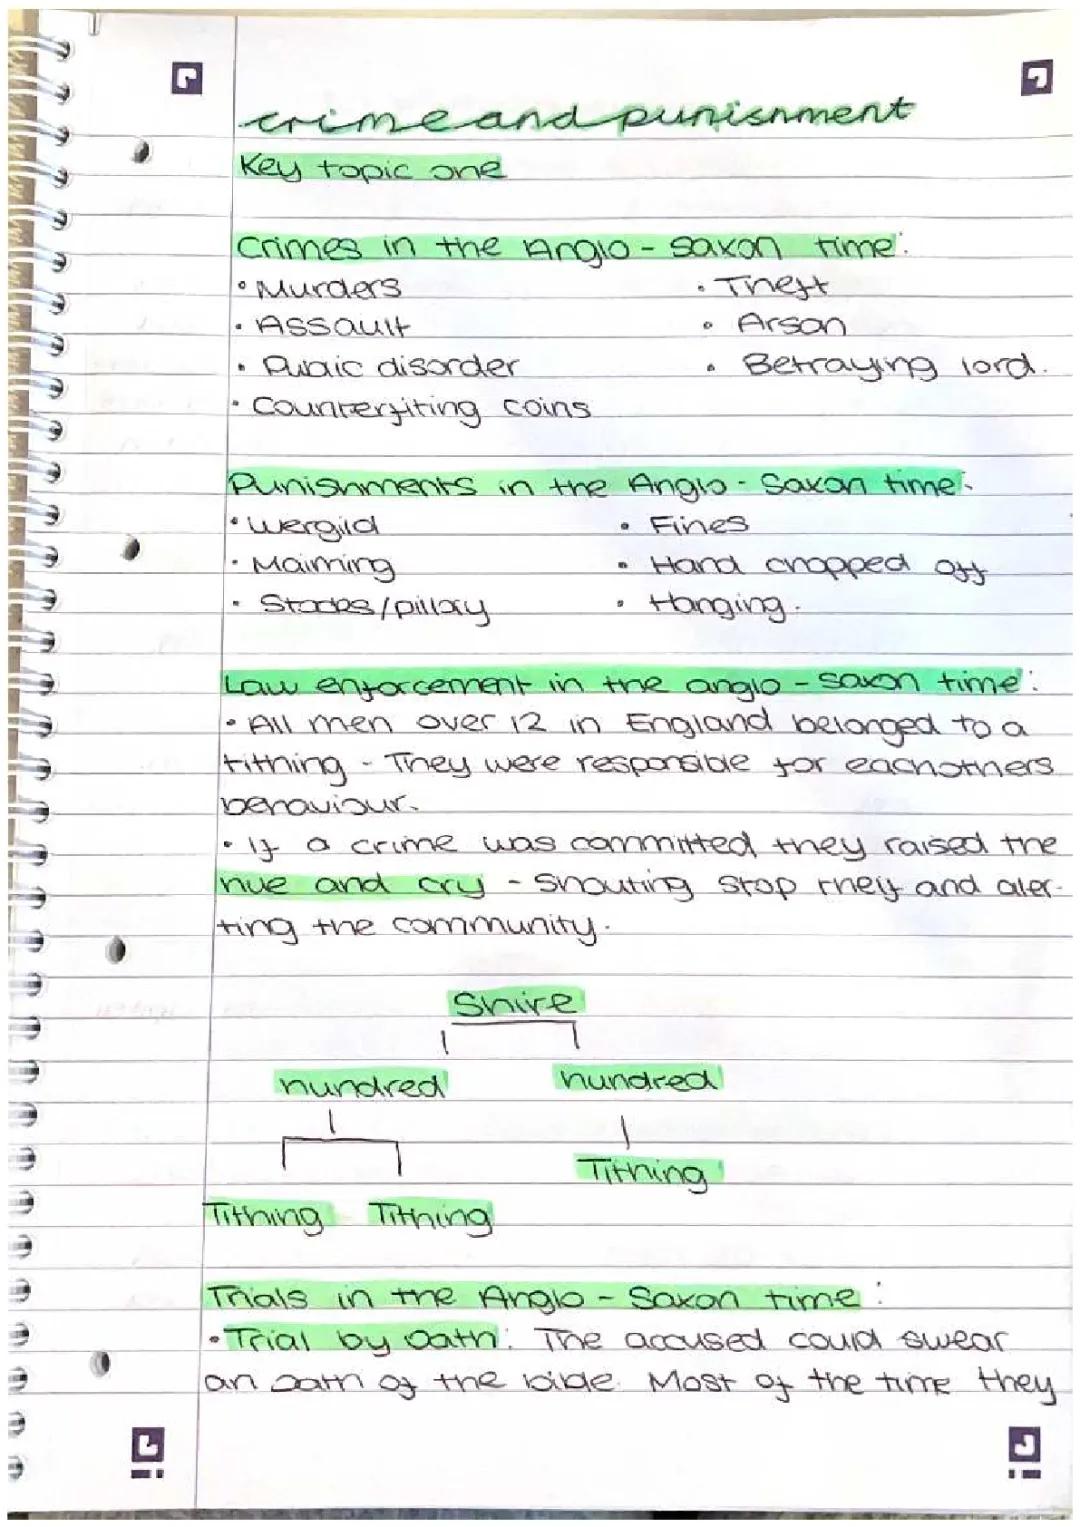 crime and punishment
Key topic one
Crimes in the Anglo - Saxon time:
• Murders • Theft
• Assault • Arson
• Public disorder • Betraying lord.
• Counterfiting coins
Punishments in the Anglo - Saxon time:
• Wergild • Fines
• Maiming • Hand chopped off
• Stocks/pillory • Hanging.
Law enforcement in the anglo - saxon time:
• All men over 12 in England belonged to a
tithing - They were responsible for eachothers
behaviour.
• If a crime was committed they raised the
hue and cry - Shouting stop theif and aler-
ting the community.
Shire
hundred hundred
Tithing
Tithing Tithing
Trials in the Anglo - Saxon time:
• Trial by Oath: The accused could swear
an oath of the bible. Most of the time they